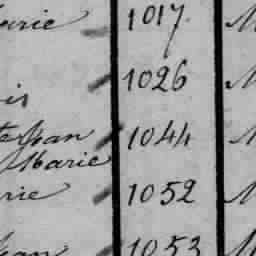 arie 1017 M
is 1026 M
te Jean 1044 M
Marie
rie 1052 M
Jean 1053 M